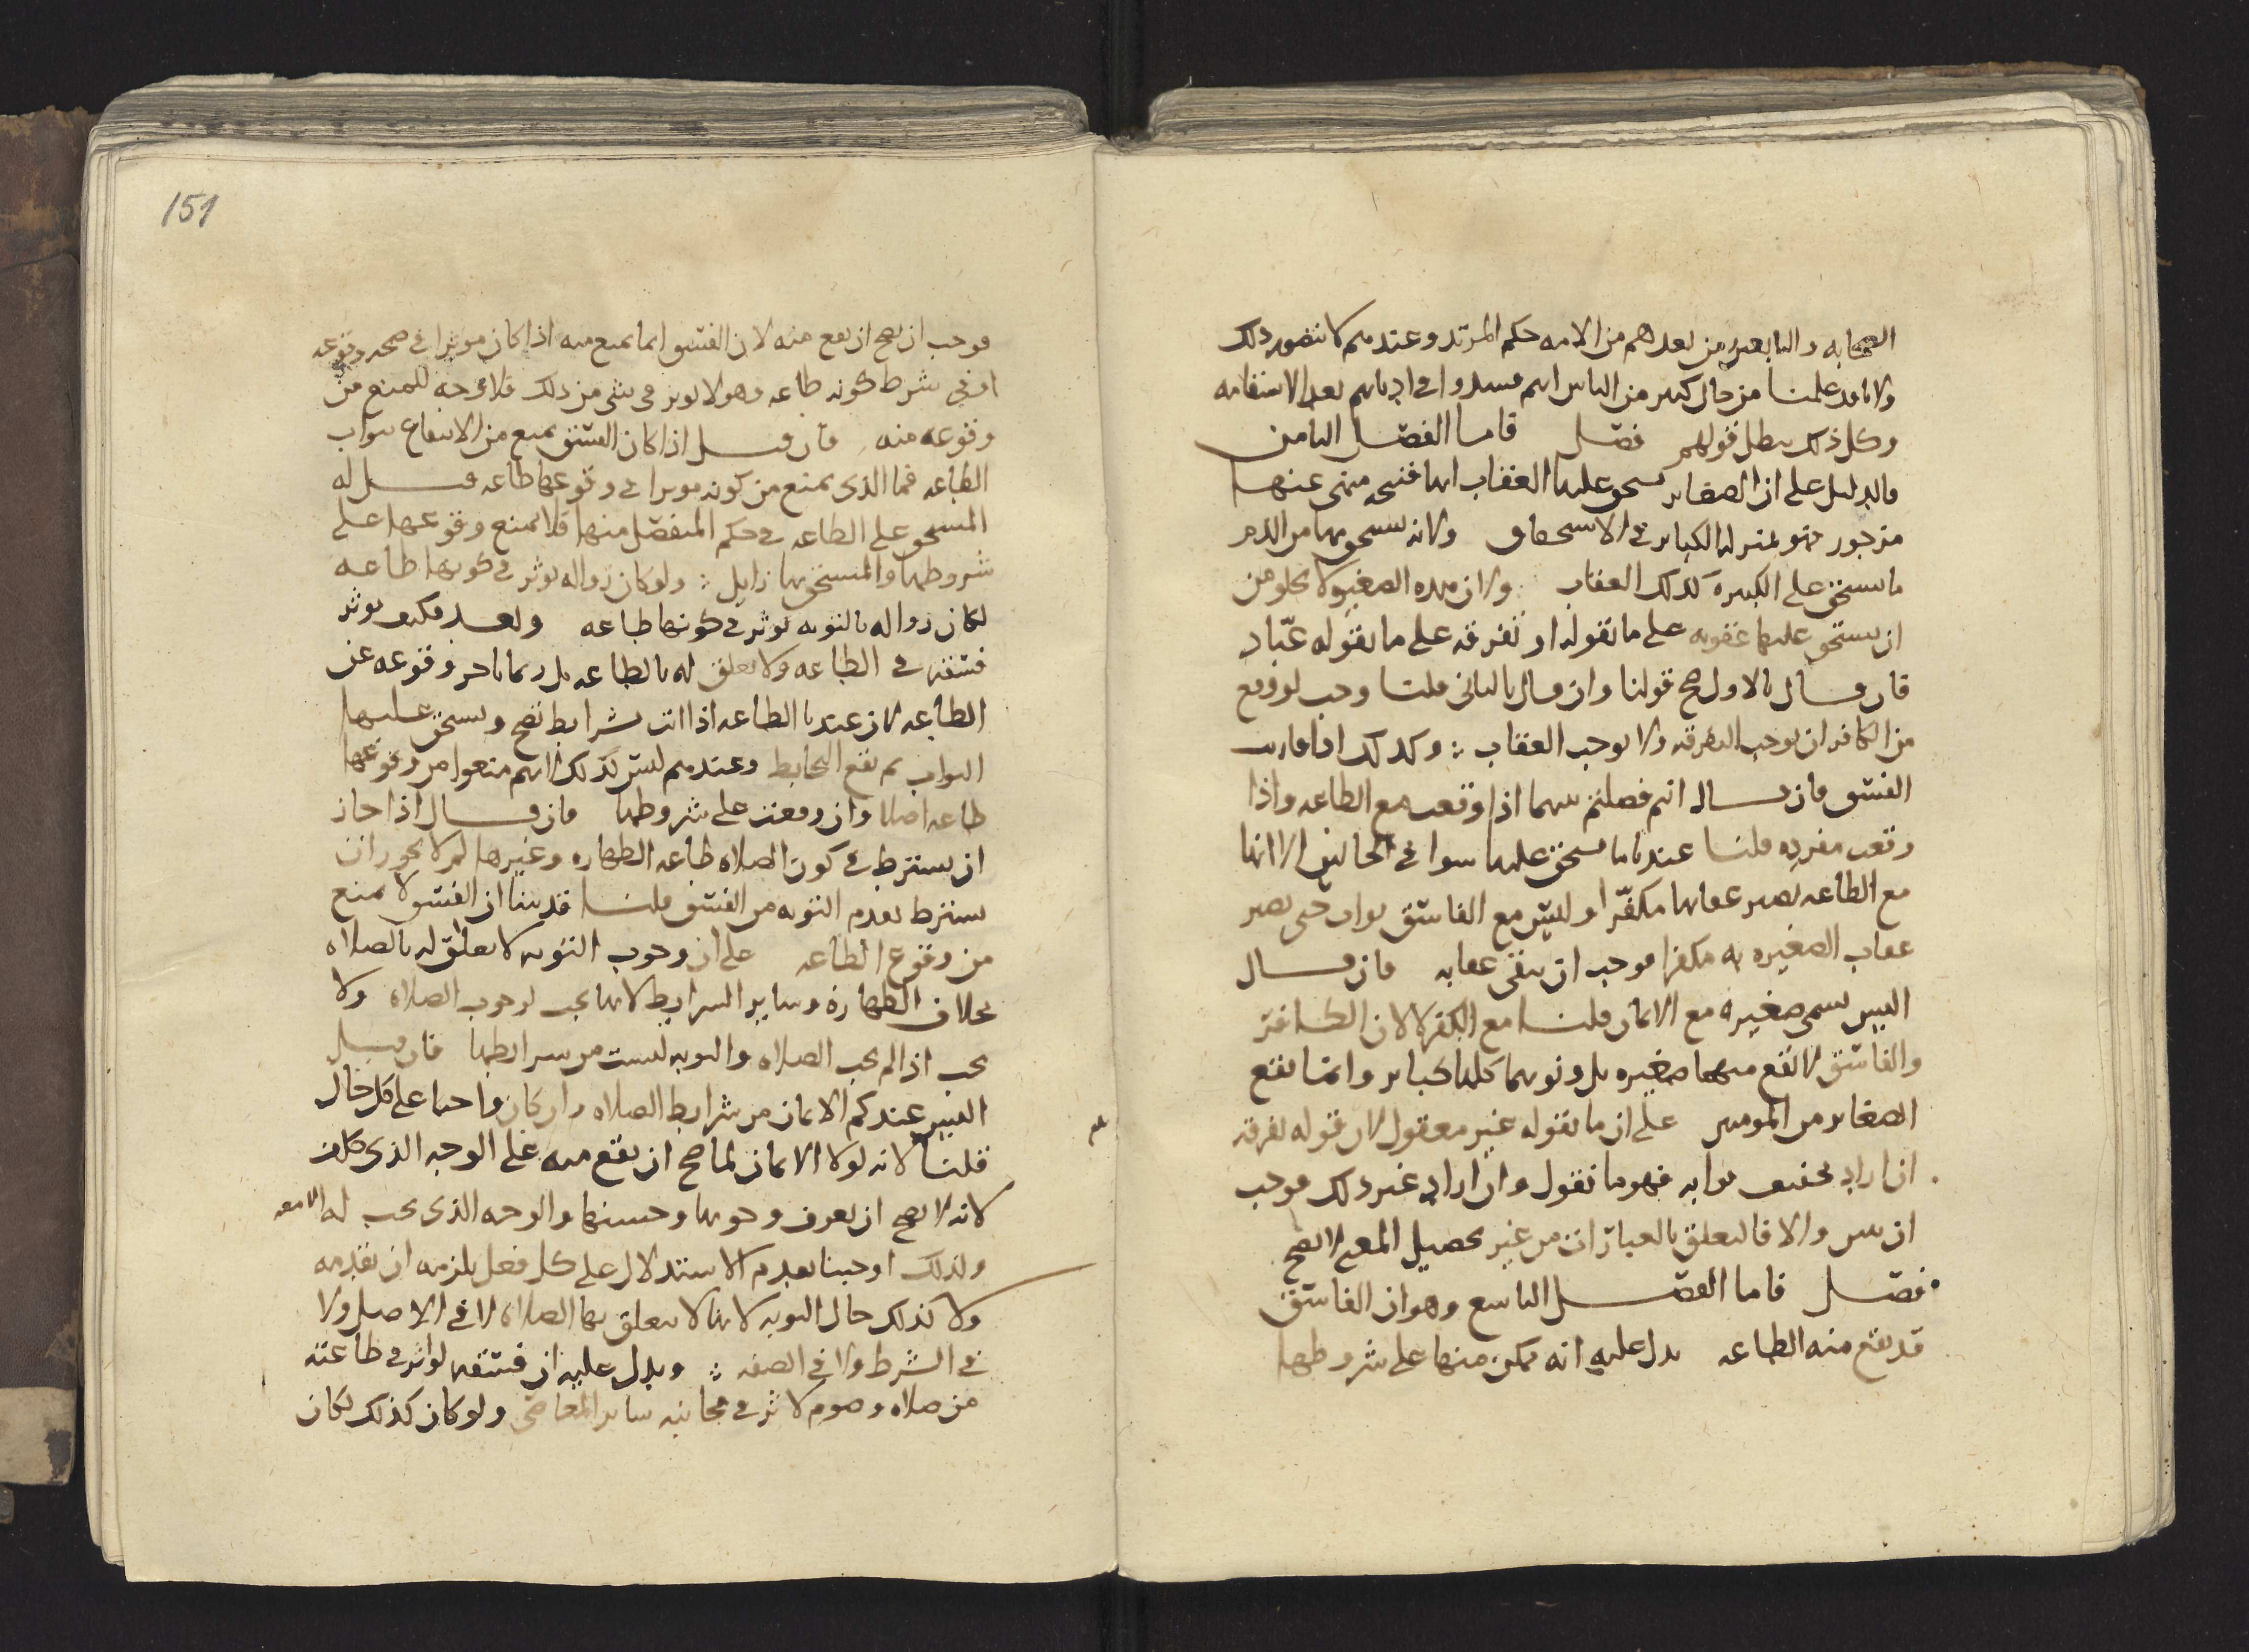 الصحابه والتابعين من بعدهم من الامه حكم المرتد وعندهم لا نتصور ذلك
ولانا قد علمنا من حال كثير من الناس انهم فسدوا في اديانهم بعد الاستقامه
وكل ذلك يبطل قولهم فصل فاما الفصل الثامن
فالدليل على ان الصغاير يستحق عليها العقاب انها قبيحه منهى عنها
مزجور فهو بمنزله الكباير في الاستحقاق ولانه يستحق بها من الذم
ما يستحق على الكبيره كذلك العقاب ولان هذه الصغيره لا يخلو من
ان يستحق عليها عقوبه على ما نقوله او تفرقه على ما يقوله عباد
فان قال بالاول صح قولنا وان قال بالثاني قلنا وجب لو وقع
من الكافر ان يوجب التفرقه ولا يوجب العقاب وكذلك اذا قارنت
الفسق فان قال انتم فصلتم بينهما اذا وقعت مع الطاعه واذا
وقعت مفرده قلنا عندنا ما يستحق عليها سوا في الحالين الا انها
مع الطاعه يصير عقابها مكفرا وليس مع الفاسق ثواب حتى يصير
عقاب الصغيره به مكفرا فوجب ان يبقى عقابه فان قال
اليس يسمى صغيره مع الايمان قلنا مع الكفر لا لان الكافر
والفاسق لا تقع منهما صغيره بل ذنوبهما كلها كباير وانما تقع
الصغاير من المومنين على ان ما يقوله غير معقول لان قوله تفرقه
ان اراد تخفيف ثوابه فهو ما نقول وان اراد غير ذلك فوجب
ان يبين والا فالتعلق بالعبارات من غير تحصيل المعنى لا يصح
فصل فاما الفصل التاسع وهو ان الفاسق
قد يقع منه الطاعه يدل عليه انه يمكن منها على شروطها
151
فوجب ان يصح ان يقع منه لان الفسق انما يمنع منه اذا كان موثرا في صحه وقوعه
او في شرط كونه طاعه وهو لا يوثر في شى من ذلك فلا وجه للمنع من
وقوعه منه فان قيل اذا كان الفسق يمنع من الانتفاع بثواب
الطاعه فما الذى يمنع من كونه موثرا في وقوعها طاعه قيل له
المستحق على الطاعه في حكم المنفصل منها فلا يمنع وقوعها على
شروطها والمستحق بها زايل ولو كان زواله يوثر في كونها طاعه
لكان زواله بالتوبه يوثر في كونها طاعه وبعد فكيف يوثر
فسقه في الطاعه ولا تعلق له بالطاعه بل ربما تاخر وقوعه عن
الطاعه لان عندنا الطاعه اذا اتت بشرايط تصح ويستحق عليها
الثواب ثم يقع التحابط وعندهم ليس كذلك لانهم منعوا من وقوعها
طاعه اصلا وان وقعت على شروطها فان قال اذا جاز
ان يشترط في كون الصلاه طاعه الطهاره وغيرها لم لا يجوز ان
يشترط تقدم التوبه من الفسق قلنا قد بينا ان الفسق لا يمنع
من وقوع الطاعه على ان وجوب التوبه لا تعلق له بالصلاه
بخلاف الطهاره وساير الشرايط لانها تجب لوجوب الصلاه ولا
تجب اذا لم تجب الصلاه والتوبه ليست من شرايطها فان قيل
اليس عندكم الايمان من شرايط الصلاه وان كان واجبا على كل حال
قلنا لانه لولا الايمان لما صح ان يقع منه على الوجه الذى كلف
لانه لا يصح ان يعرف وجوبها وحسنها والوجه الذى يجب له الا معه
ولذلك اوجبنا تقدم الاستدلال على كل فعل يلزمه ان يقدمه
ولا كذلك حال التوبه لانها لا يتعلق بها الصلاه لا في الاصل ولا
في الشرط ولا في الصفه ويدل عليه ان فسقه لو اثر في طاعته
من صلاه وصوم لاثر في مجانبه ساير المعاصى ولو كان كذلك لكان